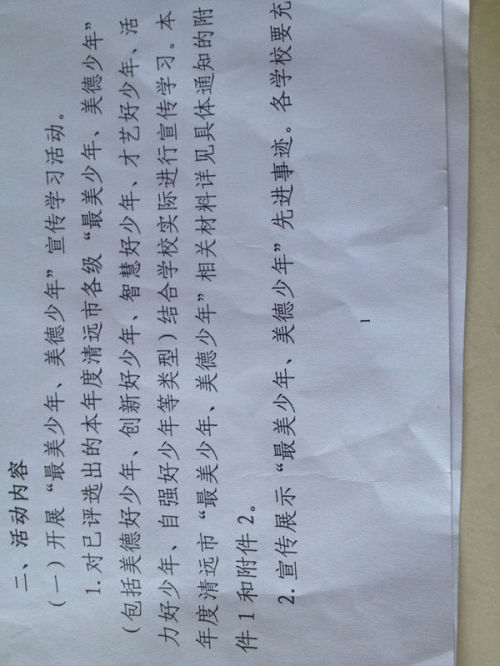 二、活动内容
（一）开展“最美少年、美德少年”宣传学习活动。
1.对已评选出的本年度清远市各级“最美少年、美德少年”
（包括美德好少年、创新好少年、智慧好少年、才艺好少年、活
力好少年、自强好少年等类型）结合学校实际进行宣传学习。本
年度清远市“最美少年、美德少年”相关材料详见具体通知的附
件1和附件2。
2.宣传展示“最美少年、美德少年”先进事迹。各学校要充
1